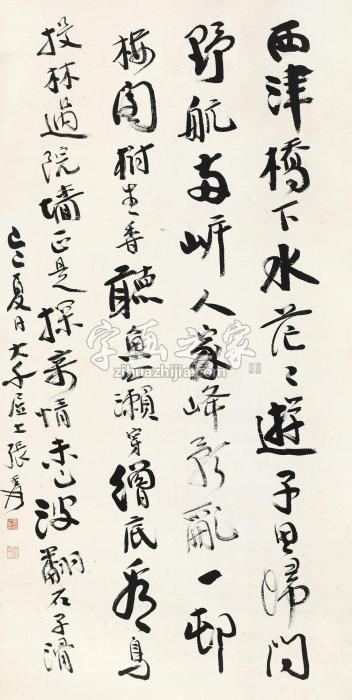 西津橋下水茫茫遊子思歸問
野航兩岍人家峰影亂一邨
梅閣樹生香聽魚上瀨穿僧底看鳥
投林過院墻正是探奇情未已沒翻石子滑
己巳夏日大千居士張爰
字画之家
zihuazhijia.com